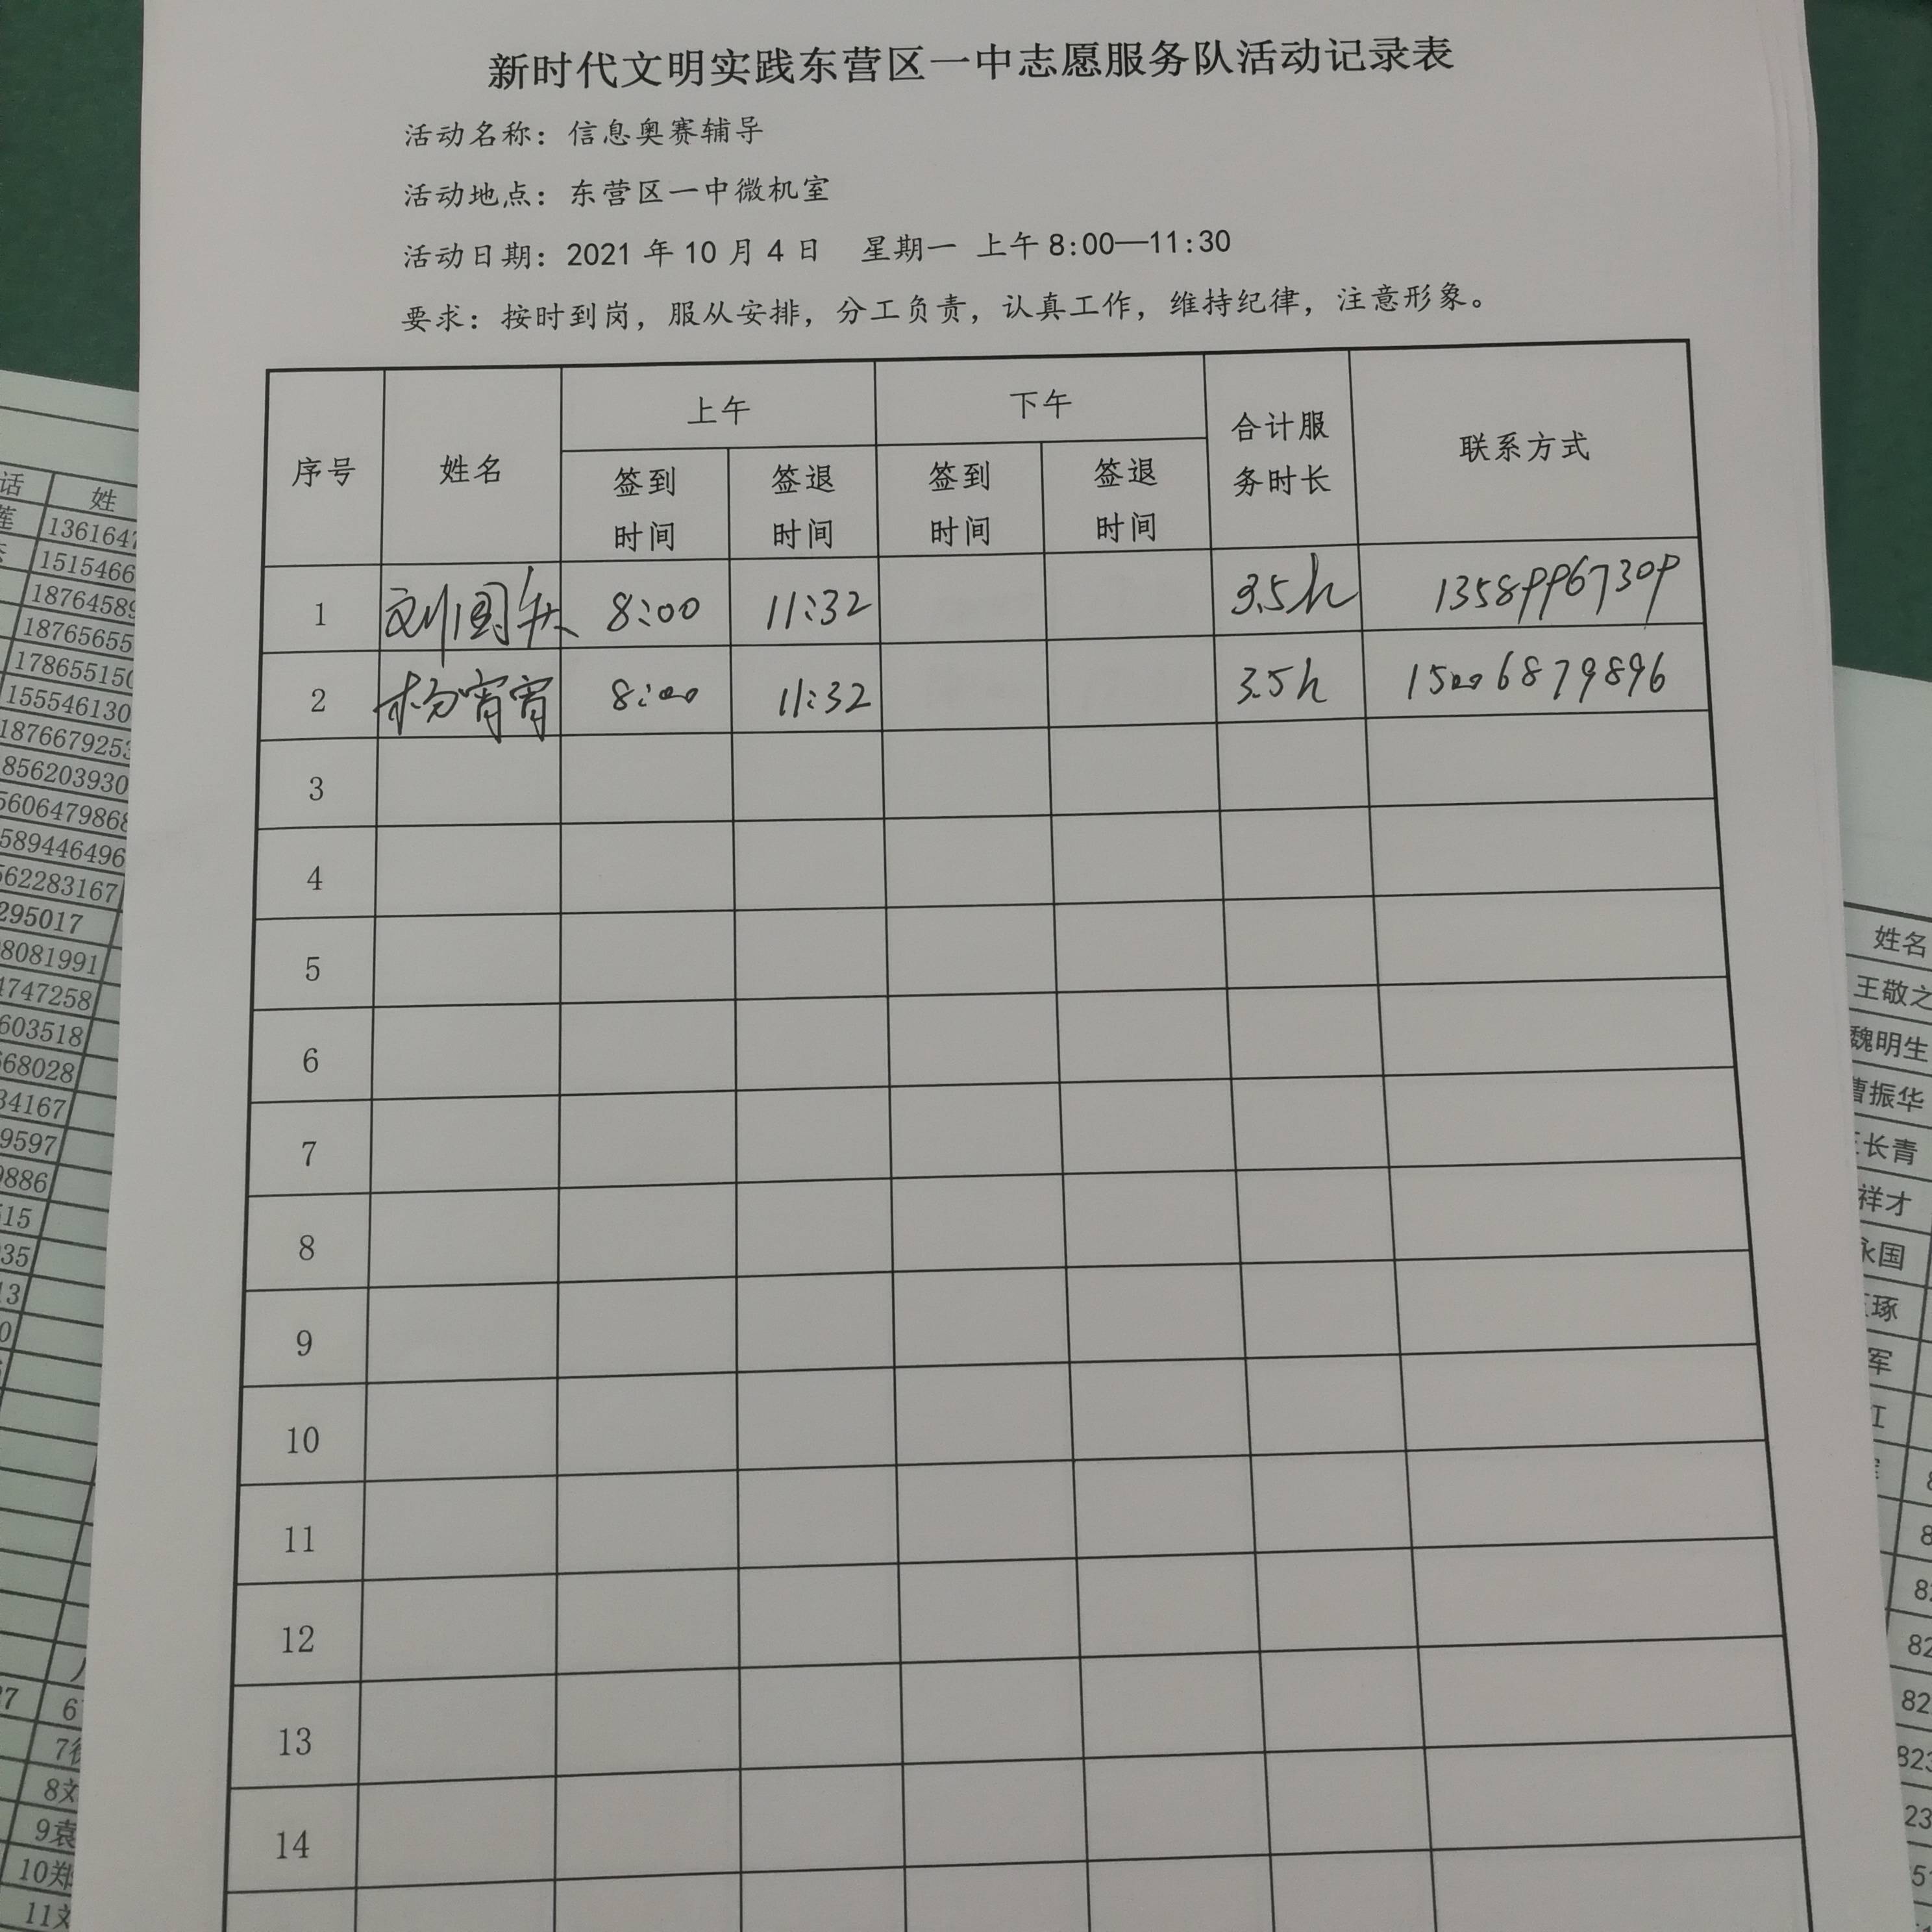 新时代文明实践东营区一中志愿服务队活动记录表
活动名称：信息奥赛辅导
活动地点：东营区一中微机室
活动日期：2021 年 10 月 4 日 星期一 上午 8:00—11:30
要求：按时到岗，服从安排，分工负责，认真工作，维持纪律，注意形象。
序号 姓名 上午 下午 合计服务时长 联系方式
签到时间 签退时间 签到时间 签退时间
1 刘国 8:00 11:32 3.5h 13589967309
2 杨宵宵 8:00 11:32 3.5h 15006879896
3
4
5
6
7
8
9
10
11
12
13
14
话 姓
1361647
1515466
18764589
18765655
17865515
155546130
1876679253
856203930
560647986
589446496
562283167
295017
8081991
4747258
603518
68028
34167
9597
9886
15
35
13
0
27 6
7
8刘
9袁
10郑
11刘
姓名
王敬之
魏明生
曹振华
长青
祥才
永国
琢
军
红
8
8
82
82
823
23